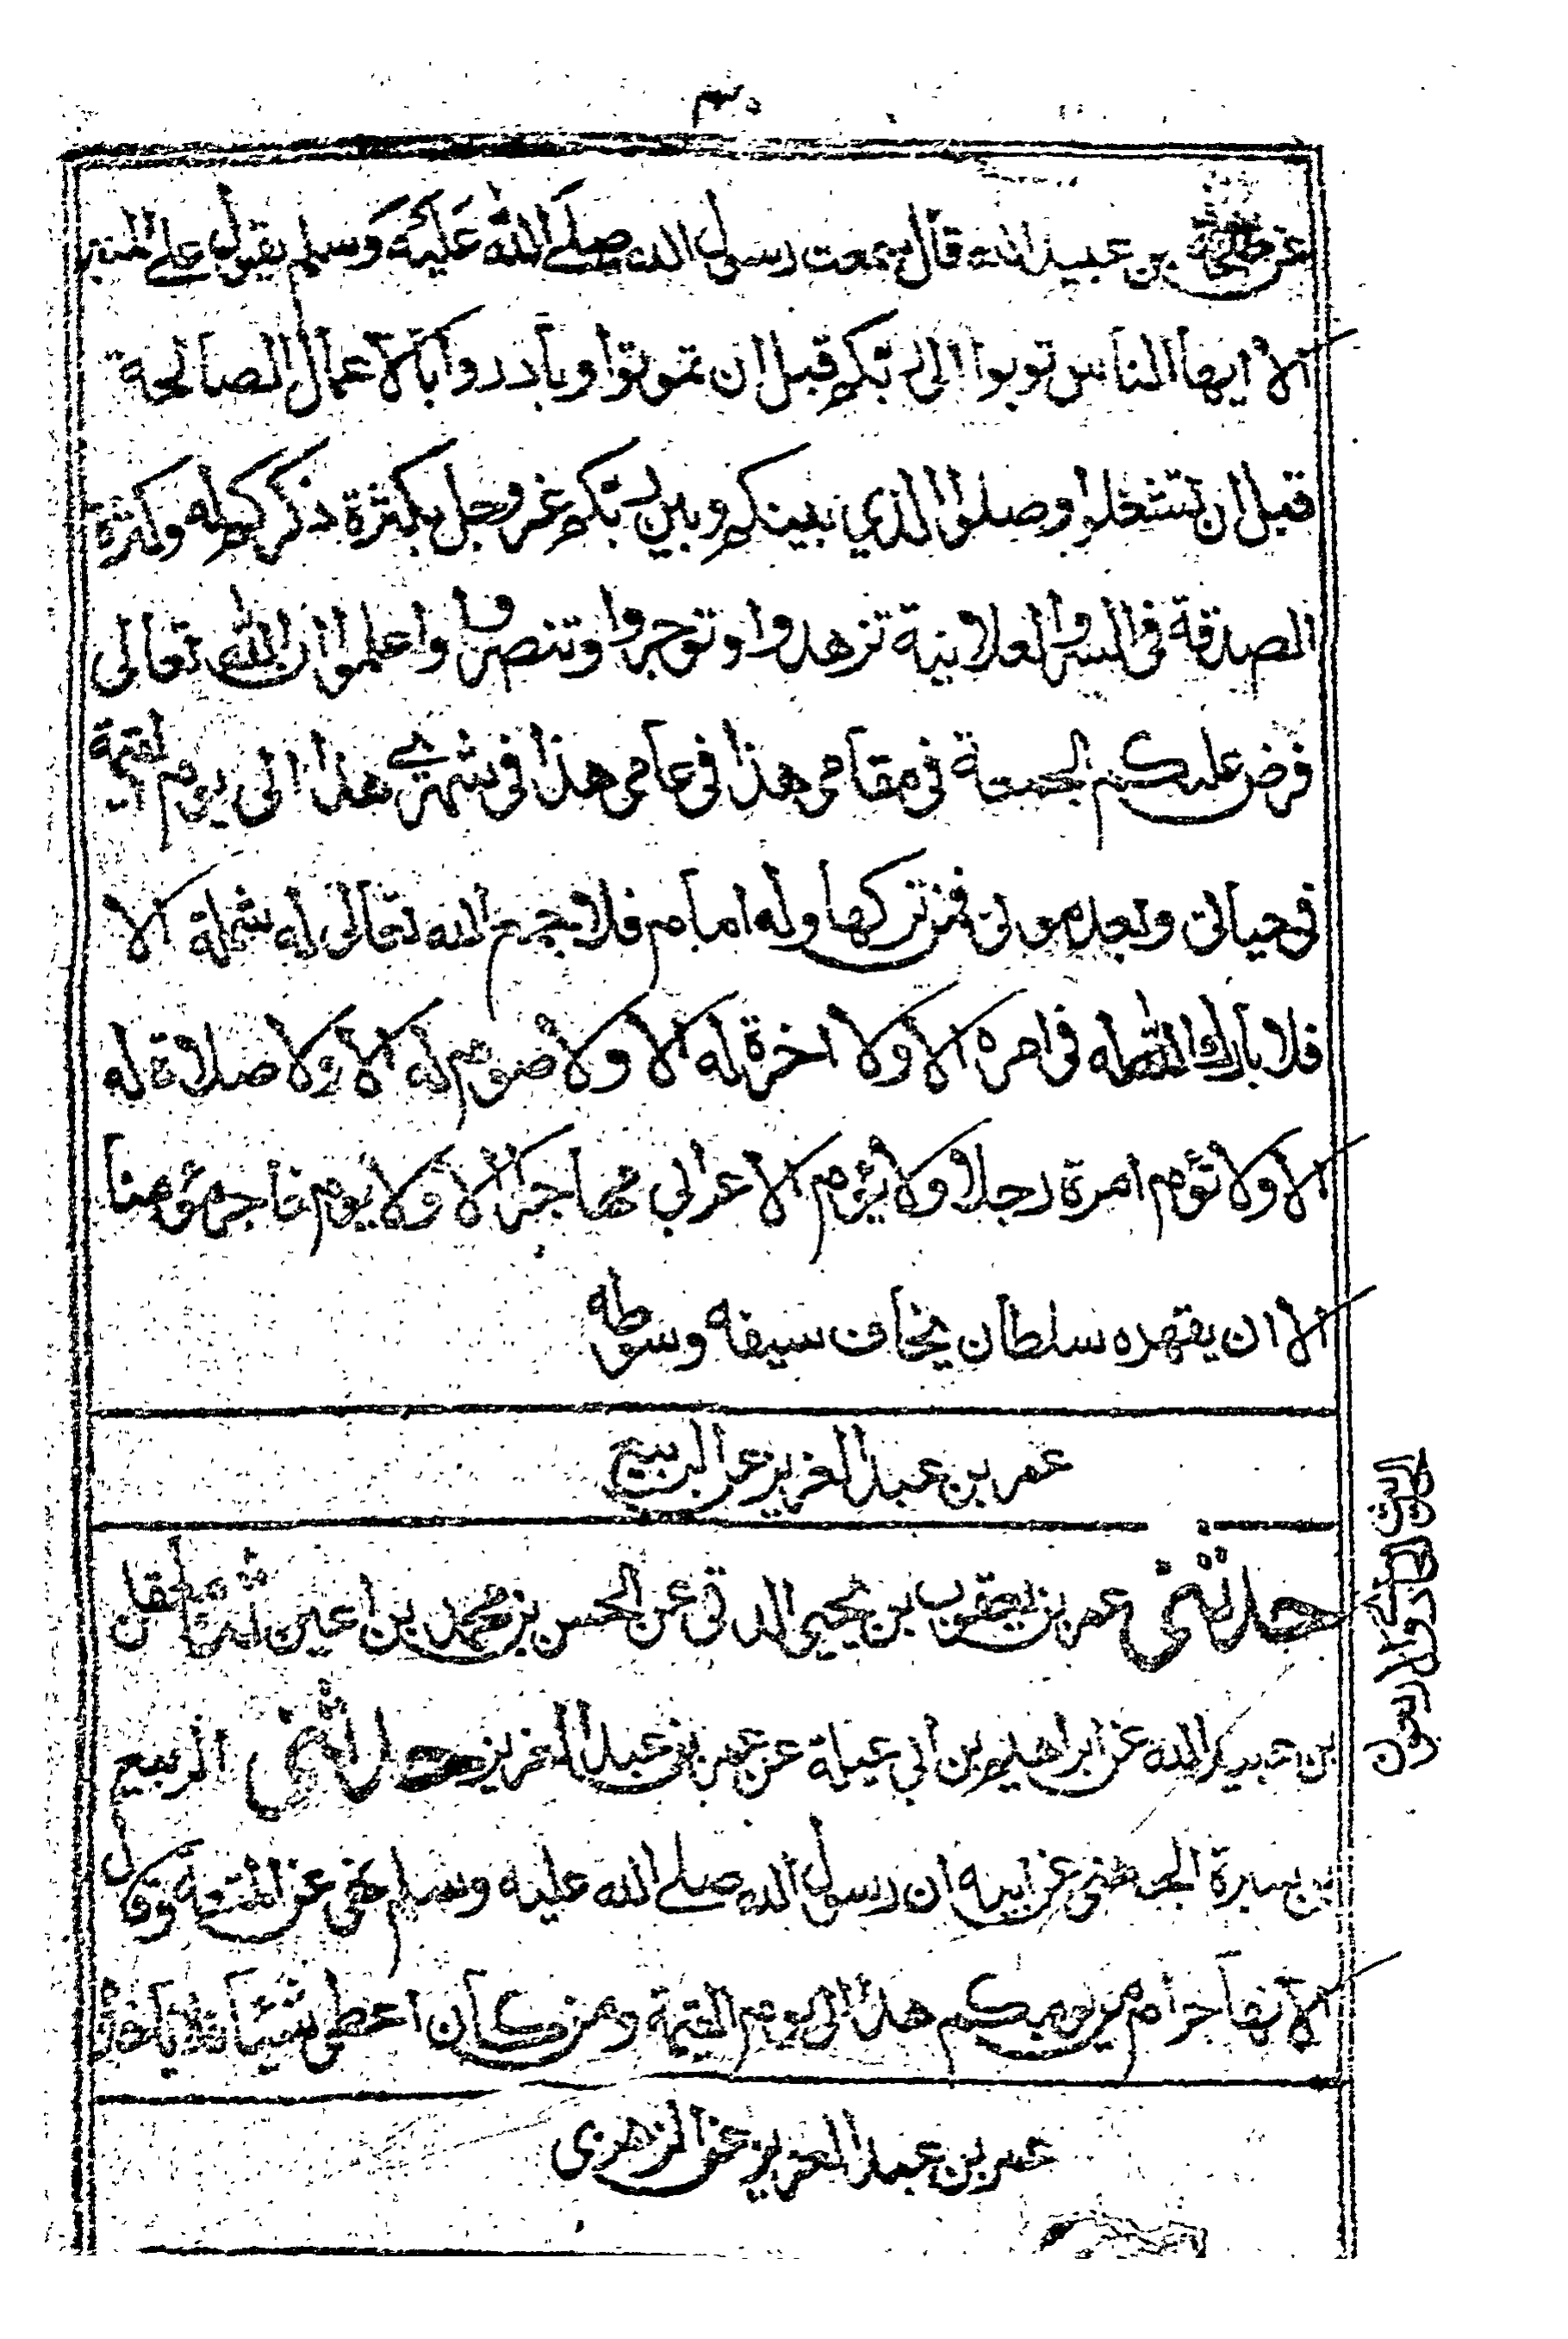 ٣٠
عن طلحة بن عبيد الله قال سمعت رسول الله صلى الله عليه وسلم يقول على المنبر
الا ايها الناس توبوا الى ربكم قبل ان تموتوا وبادروا بالاعمال الصالحة
قبل ان تشغلوا وصلوا الذي بينكم وبين ربكم عز وجل بكثرة ذكركم له وكثرة
الصدقة في السر والعلانية تزهدوا وتوجروا وتنصروا واعلموا ان الله تعالى
فرض عليكم الجمعة في مقامى هذا في عامى هذا في شهرى هذا الى يوم القيمة
في حياتى وبعد موتى فمن تركها وله امام فلا جمع الله تعالى له شملة الا
فلا بارك الله له في امره الا ولا اخرة له الا ولا صوم له الا ولا صلاة له
الا ولا تؤم امرة رجلا ولا يؤم الاعرابى مهاجرا الا ولا يوم فاجر مؤمنا
الا ان يقهره سلطان يخاف سيفه وسوطه
عمر بن عبد العزيز عن الربيع
حدثنى عمر بن يعقوب بن يحيى الدقى عن الحسن بن محمد بن اعين ثنا معقل
بن عبيد الله عن ابراهيم بن ابى عبلة عن عمر بن عبد العزيز حدثنى الربيع
بن سبرة الجهنى عن ابيه ان رسول الله صلى الله عليه وسلم نهى عن المتعة وقال
الا انها حرام من يومكم هذا الى يوم القيمة ومن كان اعطى شيئا فلا ياخذه
عمر بن عبد العزيز عن الزهرى